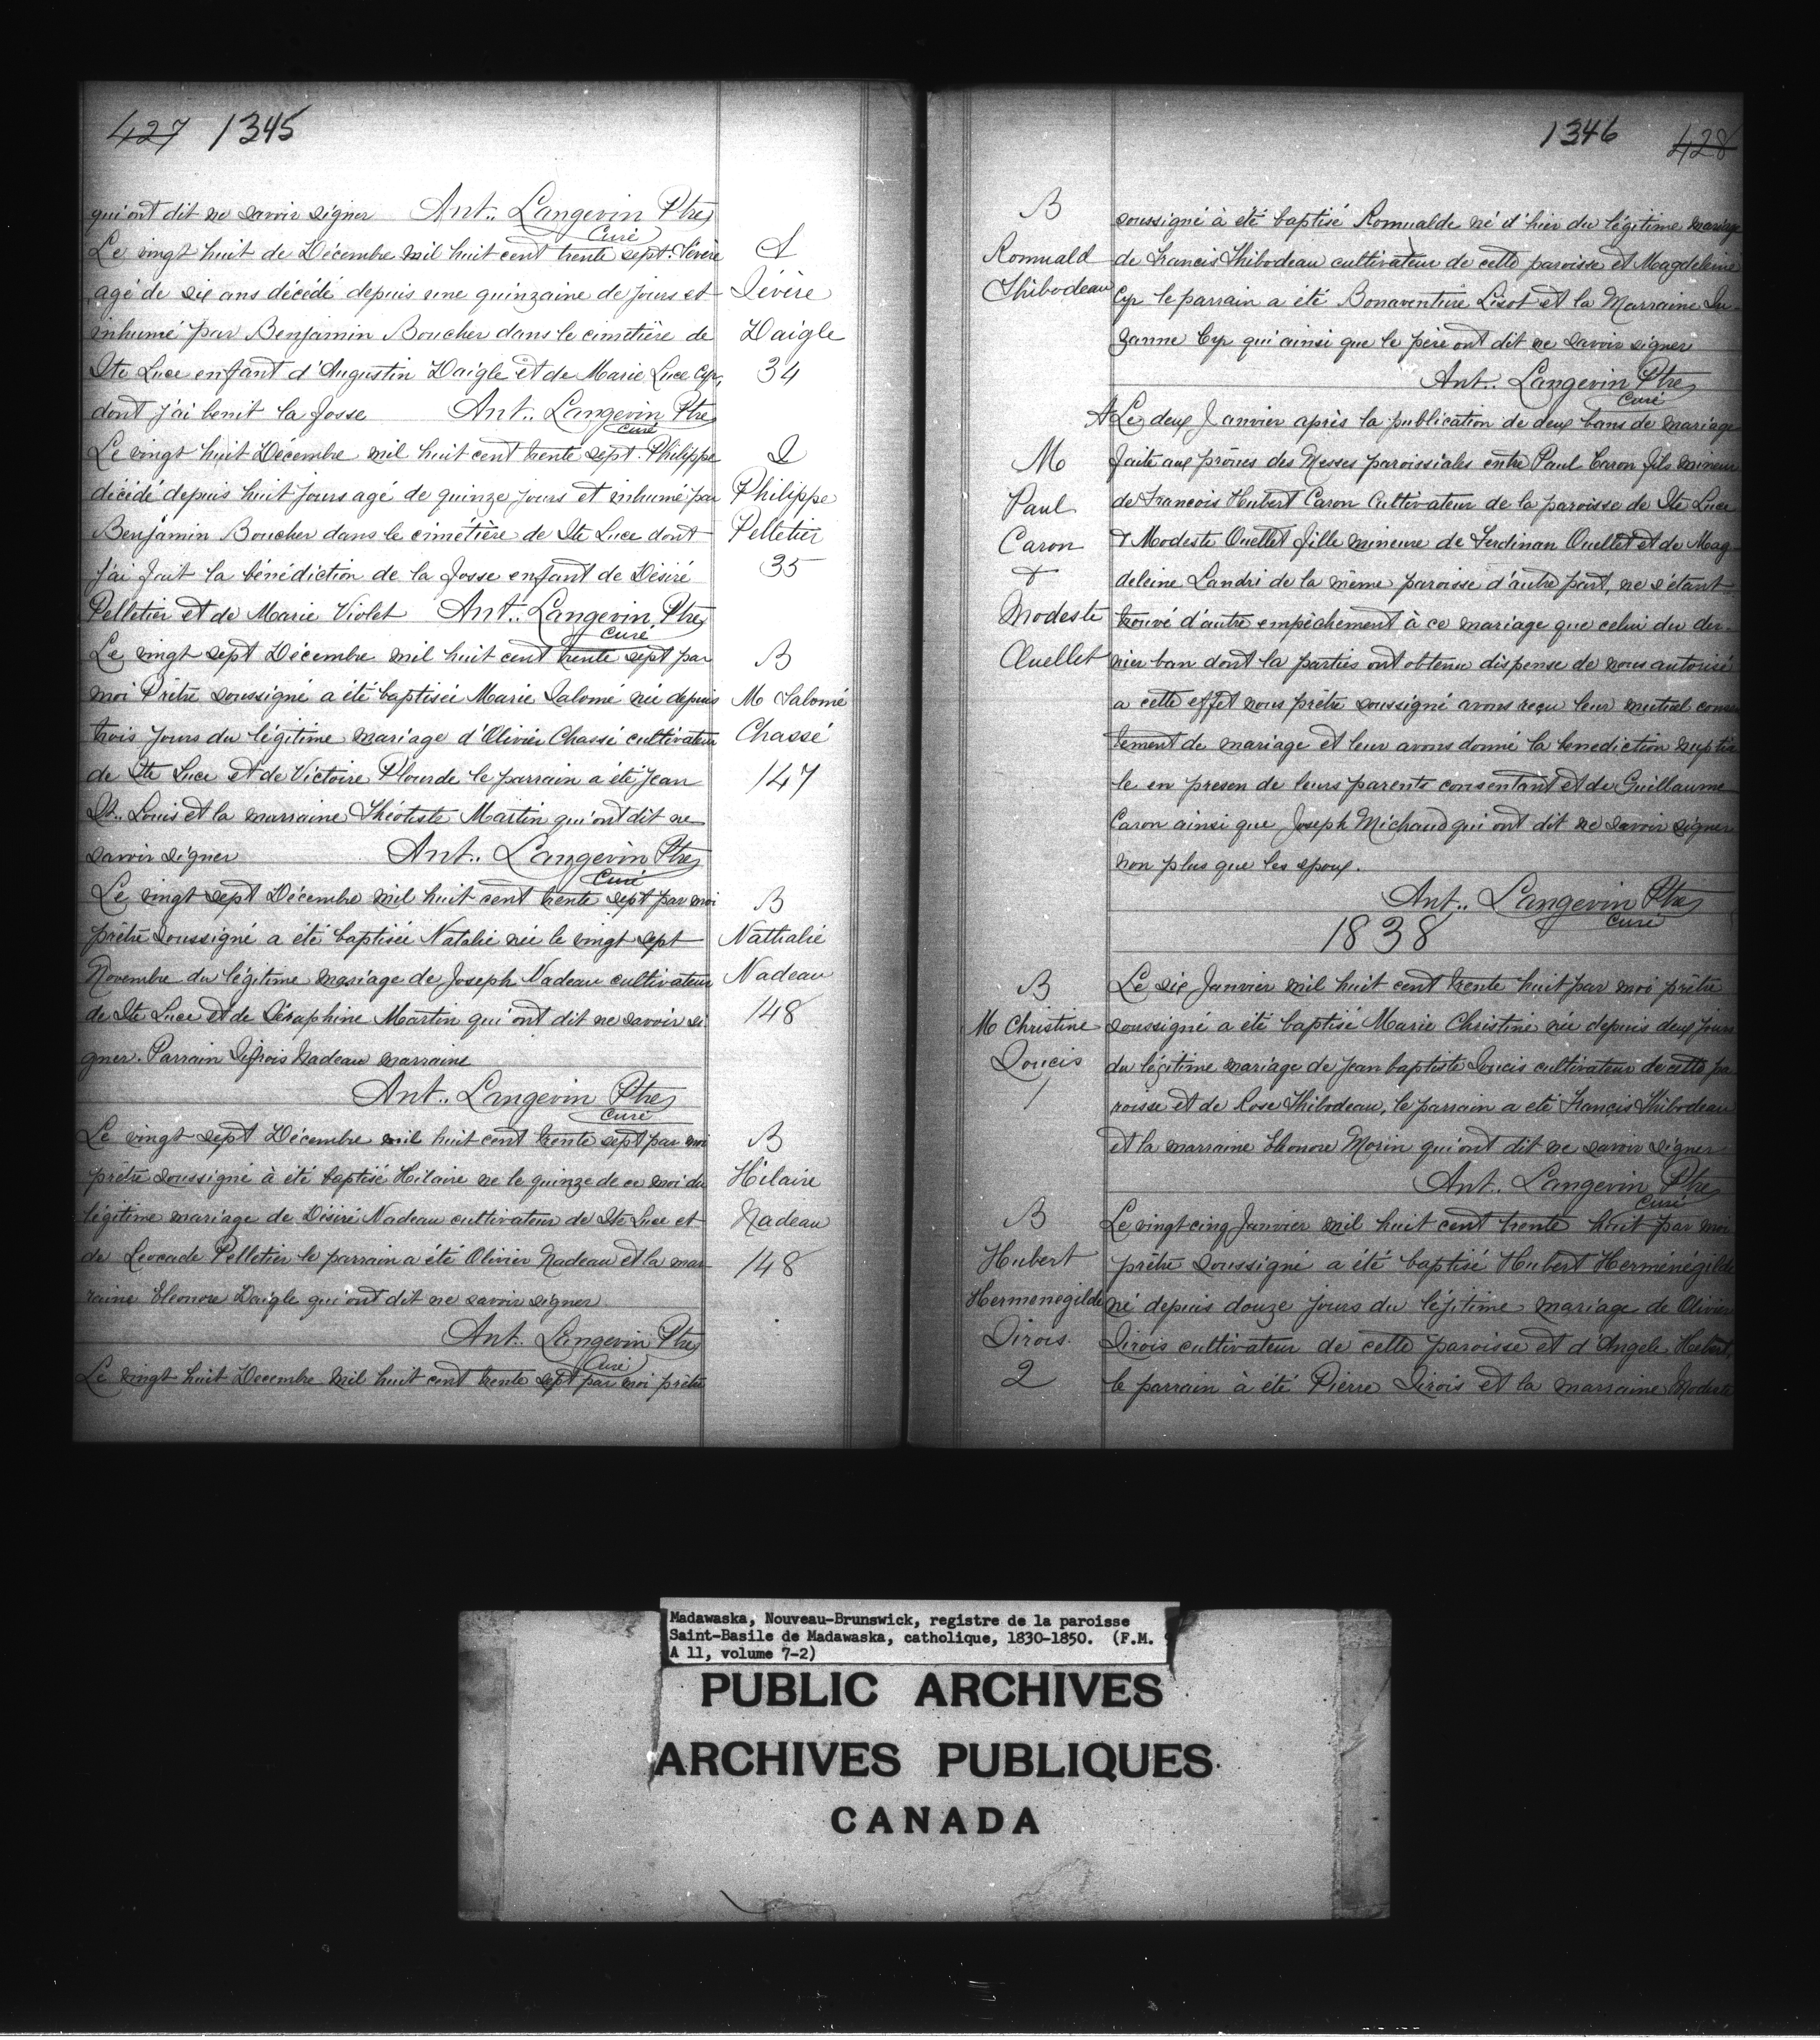 427 1345
qui ont dit ne savoir signer Ant.. Langevin Ptre
Curé
Le vingt huit de Décembre mil huit cent trente sept. Sévère
S
agé de six ans décédé depuis une quinzaine de jours et
Sévère
inhumé par Benjamin Boucher dans le cimetière de
Daigle
Ste Luce enfant d'Augustin Daigle et de Marie Luce Cyr,
34
dont j'ai benit la fosse Ant.. Langevin Ptre
Curé
Le vingt huit Décembre mil huit cent trente sept. Philippe
S
décédé depuis huit jours agé de quinze jours et inhumé par
Philippe
Benjamin Boucher dans le cimétière de Ste Luce dont
Pelletier
j'ai fait la bénédiction de la fosse enfant de Désiré
35
Pelletier et de Marie Violet Ant.. Langevin Ptre
Curé
Le vingt sept Décembre mil huit cent trente sept par
B
moi Prêtre soussigné a été baptisée Marie Salomé née depuis
M Salomé
trois jours du légitime mariage d'Olivier Chassé cultivateur
Chassé
de Ste Luce et de Victoire Plourde le parrain a été Jean
147
Bt. Louis et la marraine Théotiste Martin qui ont dit ne
savoir signer Ant.. Langevin Ptre
Curé
Le vingt sept Décembre mil huit cent trente sept par moi
B
prêtre soussigné a été baptisée Natalie née le vingt sept
Nathalie
Novembre du légitime mariage de Joseph Nadeau cultivateur
Nadeau
de Ste Luce et de Séraphine Martin qui ont dit ne savoir si
148
gner. Parrain Nadeau marraine
Ant.. Langevin Ptre
Curé
Le vingt sept Décembre mil huit cent trente sept par moi
B
prêtre soussigné à été baptisé Hilaire ne le quinze de ce moi du
Hilaire
légitime mariage de Désiré Nadeau cultivateur de Ste Luce et
Nadeau
de Leocade Pelletier le parrain a été Olivier Nadeau et la mar
148
raine Eleonore Daigle qui ont dit ne savoir signer
Ant.. Langevin Ptre
Curé
Le vingt huit Decembre mil huit cent trente sept par moi prêtre
1346 428
B
soussigné à été baptisé Romualde né d'hier du légitime mariage
Romuald
de Francis Thibodeau cultivateur de cette paroisse et Magdeleine
Thibodeau
Cyr le parrain a été Bonaventure Lisot et la Marraine Su-
zanne Cyr qui ainsi que le père ont dit ne savoir signer
Ant.. Langevin Ptre
Curé
Le deux Janvier après la publication de deux bans de mariage
M
faite aux prônes des Messes paroissiales entre Paul Caron fils mineur
Paul
de Francois Hubert Caron Cultivateur de la paroisse de Ste Luce
Caron
& Modeste Ouellet fille mineure de Ferdinan Ouellet et de Mag
&
deleine Landri de la même paroisse d'autre part, ne s'étant
Modeste
trouvé d'autre empêchement à ce mariage que celui du der-
Ouellet
nier ban dont la parties ont obtenu dispense de nous autorisé
a cette effet nous prêtre soussigné avons reçu leur mutuel consen
tement de mariage et leur avons donné la benediction nuptia
le en presen de leurs parents consentant et de Guillaume
Caron ainsi que Joseph Michaud qui ont dit ne savoir signer
non plus que les epoux.
Ant.. Langevin Ptre
Curé
1838
B
Le six Janvier mil huit cent trente huit par moi prêtre
M Christine
soussigné a été baptisé Marie Christine née depuis deux jours
Soucis
du légitime mariage de Jean baptiste Soucis cultivateur de cette pa
1
roisse et de Rose Thibodeau, le parrain a eté Francis Thibodeau
et la marraine Eleonore Morin qui ont dit ne savoir signer
Ant.. Langevin Ptre
Curé
B
Le vingt cinq Janvier mil huit cent trente huit par moi
Hubert
prêtre soussigné a été baptisé Hubert Herménégilde
Hermenegilde
né depuis douze jours du légitime mariage de Olivier
Sirois.
Sirois cultivateur de cette paroisse et d'Angele Hebert,
2
le parrain à été Pierre Sirois et la marraine Modeste
Madawaska, Nouveau-Brunswick, registre de la paroisse
Saint-Basile de Madawaska, catholique, 1830-1850. (F.M. 9
A 11, volume 7-2)
PUBLIC ARCHIVES
ARCHIVES PUBLIQUES
CANADA